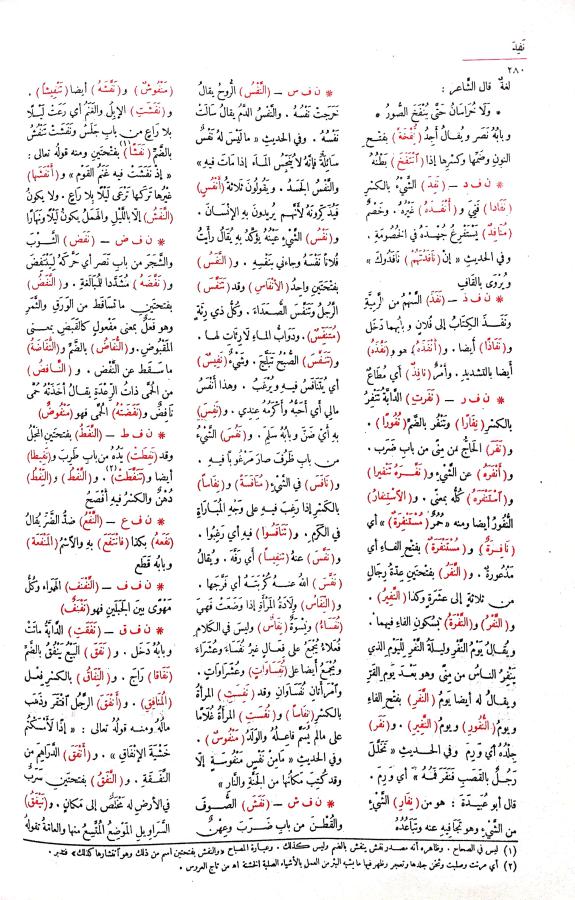 نَفِدَ
٢٨٠
لغةٌ قال الشّاعر :
* ولا خُراسَانَ حَتَّى يُنْفَخَ الصُّورُ *
وبابُه نَصَر ويُقال أجِدُ (نُفْخَةً) بفتْحِ
النونِ وضَمِّها وكَسْرِها إذا (انْتَفَخَ) بَطْنُهُ
* ن ف د – (نَفِدَ) الشَّيْءُ بالكَسْر
(نَفَادًا) فَنِيَ و(أَنْفَدَهُ) غَيْرُهُ . وخَصْمٌ
(مُنَافِدٌ) يَسْتَفْرِغُ جُهْدَهُ فى الخُصومةِ .
وفي الحديثِ « إنْ (نَافَدْتَهُمْ) نَافَدُوكَ »
ويُرْوَى بالقَافِ
* ن ف ذ – (نَفَذَ) السَّهْمُ من الرَّمِيَّةِ
ونَفَـذَ الكِتابُ إلى فُلان و بابهما دَخَل
و(نَفَاذًا) أيضا . و(أَنْفَذَهُ) هو و(نَفَّذَهُ)
أيضا بالتشديد . وأمْرٌ (نافِذٌ) أي مُطَاعٌ
* ن ف ر – (نَفَرتِ) الدَّابَّةُ تَنْفِرُ
بالكسْرِ (نِفَارًا) وتَنْفُر بالضَّم (نُفُورًا) .
و(نَفَرَ) الحَاجُّ من مِنًى من باب ضَرَب .
و(أنْفَرَهُ) عن الشَّيْءِ و(نَفَّـرَهُ تَنْفِيرا)
و(اسْتَنْفَرَهُ) كُلُّه بمعنًى . و(الاسْتِنْفَارُ)
النُّفُورُ أيضا ومنه «حُمُرٌ (مُسْتَنْفِرَةٌ)» أي
(نَافِرَةٌ) و(مُسْتَنْفَرَةٌ) بفتْحِ الفاء أي
مَذْعُورَةٌ . و(النَّفَرُ) بفتحتين عِدّةُ رِجالٍ
من ثلاثة إلى عَشَرة وكذا (النَّفِيرُ) .
و(النَّفْرُ) و(النَّفْرَةُ) بسُكون الفاءِ فيهما .
ويُقالُ يَوْمُ النَّفْرِ ولَيْلةُ النَّفْرِ لليَوم الذي
يَنْفِرُ الناسُ من مِنًى وهو بَعْدَ يَومِ القَرِّ
ويقال له أيضا يَومُ (النَّفَر) بفتح الفاءِ
ويومُ (النُّفُور) ويومُ (النَّفِير) . و(نَفَر)
جِلْدُهُ أي وَرِمَ وفي الحديث «تَخَلَّل
رَجُلٌ بالقَصَبِ فَنَفَرَ فَمُهُ » أي وَرِمَ .
قال أبو عُبيدة : هو من (نِفَارِ) الشَّيْءِ
من الشَّيْءِ وهو تَجَافيهِ عنه وتَبَاعُدُهُ
* ن ف س – (النَّفْسُ) الرُّوحُ يقالُ
خَرَجَتْ نَفْسُهُ . والنَّفْسُ الدَّمُ يقالُ سالَتْ
نَفْسُهُ . وفي الحديث « ما لَيْسَ له نَفْسٌ
سائِلَةٌ فإنَّه لا يُنَجِّسُ المَـاءَ إذا ماتَ فيه»
والنَّفْسُ الجَسَد . ويَقُولُونَ ثلاثةُ (أَنْفُسٍ)
فَيُذَكِّرُونَهُ لأنهم يريدون بهِ الإنسان .
و(نَفْسُ) الشَّيْءِ عَيْنُه يُؤكَّد به يُقالُ رأيتُ
فُلانًا نَفْسَهُ وجاءني بنَفْسِهِ . و(النَّفَسُ)
بفتحتين واحِدُ (الأنْفاسِ) وقد (تَنَفَّسَ)
الرجُلُ وتَنَفَّس الصُّعَداءَ . وكُلُّ ذي رِئَةٍ
(مُتَنَفِّسٌ) . ودَوابُّ المـاءِ لا رِئاتِ لهـا .
و(تَنَفَّسَ) الصُّبْحُ تَبَلَّجَ . وشَيْءٌ (نَفِيسٌ)
أي يُتَنَافَسُ فيـهِ ويُرْغَبُ . وهذا أَنْفَسُ
مالي أي أحَبُّه وأكْرَمُهُ عِنْدي . و(نَفِسَ)
به أي ضَنَّ وبابُه سَلِمَ . و(نَفُسَ) الشَّيْءُ
من باب ظَرُفَ صارَ مَرْغُوبًا فيـه .
و(نَافَسَ) في الشَّيْءِ (مُنَافَسَةً) و(نِفَاسا)
بالكَسْرِ إذا رَغِبَ فيه على وَجْهِ المُباراةِ
في الكَرَمِ . و(تَنَافَسُوا) فيه أي رَغِبُوا .
و(نَفَّسَ) عنهُ (تنفيسا) أي رَفَّه . ويُقالُ
(نَفَّسَ) اللّٰهُ عنـه كُرْبَتَـه أي فَرَّجها .
و(النِّفَاسُ) وِلَادَةُ المَرْأةِ إذا وَضَعَتْ فهي
(نُفَسَاءُ) ونِسْوَةٌ (نِفَاسٌ) وليس في الكلام
فُعَلاءُ يُجْمَعُ على فِعَالٍ غَيرُ نُفَسَاءَ وعُشَراءَ
ويُجمعُ أيضا على (نُفَسَاوَاتٍ) وعُشَراوَاتٍ .
وامْرأتانِ نُفَسَاوَانِ وقد (نَفِسَتِ) المرأةُ
بالكسْرِ (نِفَاسا) و(نُفِسَتِ) المرأةُ غُلامًا
على مالم يُسَمَّ فاعـلُه والوَلَدُ (مَنْفُوسٌ) .
وفي الحديث « ما مِنْ نَفْسٍ مَنْفُوسَةٍ إلا
وقد كُتِبَ مَكانُها من الجَنَّةِ والنَّارِ »
* ن ف ش – (نَفَشَ) الصُّـوفَ
والقُطْنَ من باب ضَـرَبَ وعِهْنٌ
(مَنْفُوشٌ) و(نَفَّشَهُ) أيضا (تَنْفِيشًا) .
و(نَفَشَتِ) الإبلُ والغَنَمُ أي رَعَتْ لَيْلًا
بلا راعٍ من باب جَلَس ونَفَشَتْ تَنْفُشُ
بالضَّمِّ (نَفَشًا)(١) بفتحتين ومنه قولُه تعالى :
« إذ نَفَشَتْ فيه غَنَمُ القَوْمِ » و(أَنْفَشَها)
غيرُها تَرَكَها تَرْعَى لَيْلًا بِلا راعٍ . ولا يكونُ
(النَّفَشُ) إلا باللَّيْلِ والهَمَلُ يكونُ لَيْلًا ونَهَارًا
* ن ف ض – (نَفَضَ) الثَّـوْبَ
والشَّجَرَ من باب نَصَر أي حَرَّكه لِيَنْتَفِضَ
و(نَفَّضَه) مُشَدَّدا للبَالَغَةِ . و(النَّفَضُ)
بفتحتين ما تَساقَط من الوَرَقِ والثَّمَرِ
وهو فَعَلٌ بمعنى مَفْعولٍ كالقَبَضِ بمعـنى
المَقْبُوضِ . و(النُّفَاضُ) بالضَّمِّ و(النُّفَاضَةُ)
ما سَقَطَ عن النَّفْض . و(النَّافِضُ)
من الحُمَّى ذاتُ الرِّعْدةِ يقـالُ أخَذَتْهُ حُمَّى
نَافِضٍ و(نَفَضَتْهُ) الحُمَّى فهو (مَنْفُوضٌ)
* ن ف ط – (النَّفَطُ) بفتحتين المَجْلُ
وقد (نَفِطَتْ) يَدُهُ من باب طَرِبَ و(نَفِيطا)
أيضا و(تَنَفَّطَتْ)(٢) . و(النَّفْطُ) و(النِّفْطُ)
دُهْنٌ والكسْرُ فيه أفْصَحُ
* ن ف ع – (النَّفْعُ) ضدُّ الضَّرِّ يُقالُ
(نَفَعَهُ) بكذا (فانْتَفَعَ) به والاسْمُ (المَنْفَعَةُ)
وبابُه قَطَع
* ن ف ف – (النَّفْنَفُ) الهَوَاءُ وكُلُّ
مَهْوًى بين الجَبَلَينِ فهو (نَفْنَفٌ)
* ن ف ق – (نَفَقَتِ) الدَّابَّةُ ماتَتْ
وبابُهُ دَخَل . و(نَفَقَ) البَيْعُ يَنْفُقُ بالضَّمِّ
(نَفَاقًا) رَاجَ . و(النِّفَاقُ) بالكسْرِ فِعْلُ
(المُنَافِقِ) . و(أَنْفَقَ) الرَّجُلُ افْتَقَرَ وذَهَب
مالُهُ ومنه قولُه تعالى : « إِذًا لَأَمْسَكْتُمْ
خَشْيَةَ الإنْفَاقِ » . و(أَنْفَقَ) الدَّرَاهِمَ مِن
النَّفَقَـةِ . و(النَّفَقُ) بفتحتين سَرَبٌ
في الأرضِ له مَخْلَصٌ إلى مَكانٍ . و(نَيْفَقُ)
السَّراويلِ المَوْضِعُ المُتَّسِعُ منها والعامَّةُ تقولُهُ
(١) ليس فى الصحاح . وظاهره أنه مصدر نفش ينفش بالضم وليس كذلك . وعبارة المصباح «والنفش بفتحتين اسم من ذلك وهو انتشارها كذلك» فتدبر .
(٢) أى مرنت وصلبت وثخن جلدها وتعجر وظهر فيها ما يشبه البثر من العمل بالأشياء الصلبة الخشنة اه من تاج العروس .